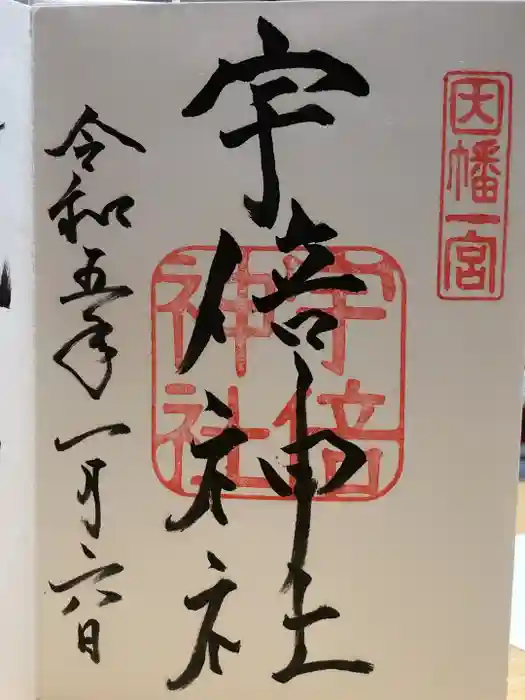 因幡一宮
宇倍神社
宇倍
神社
令和五年一月六日